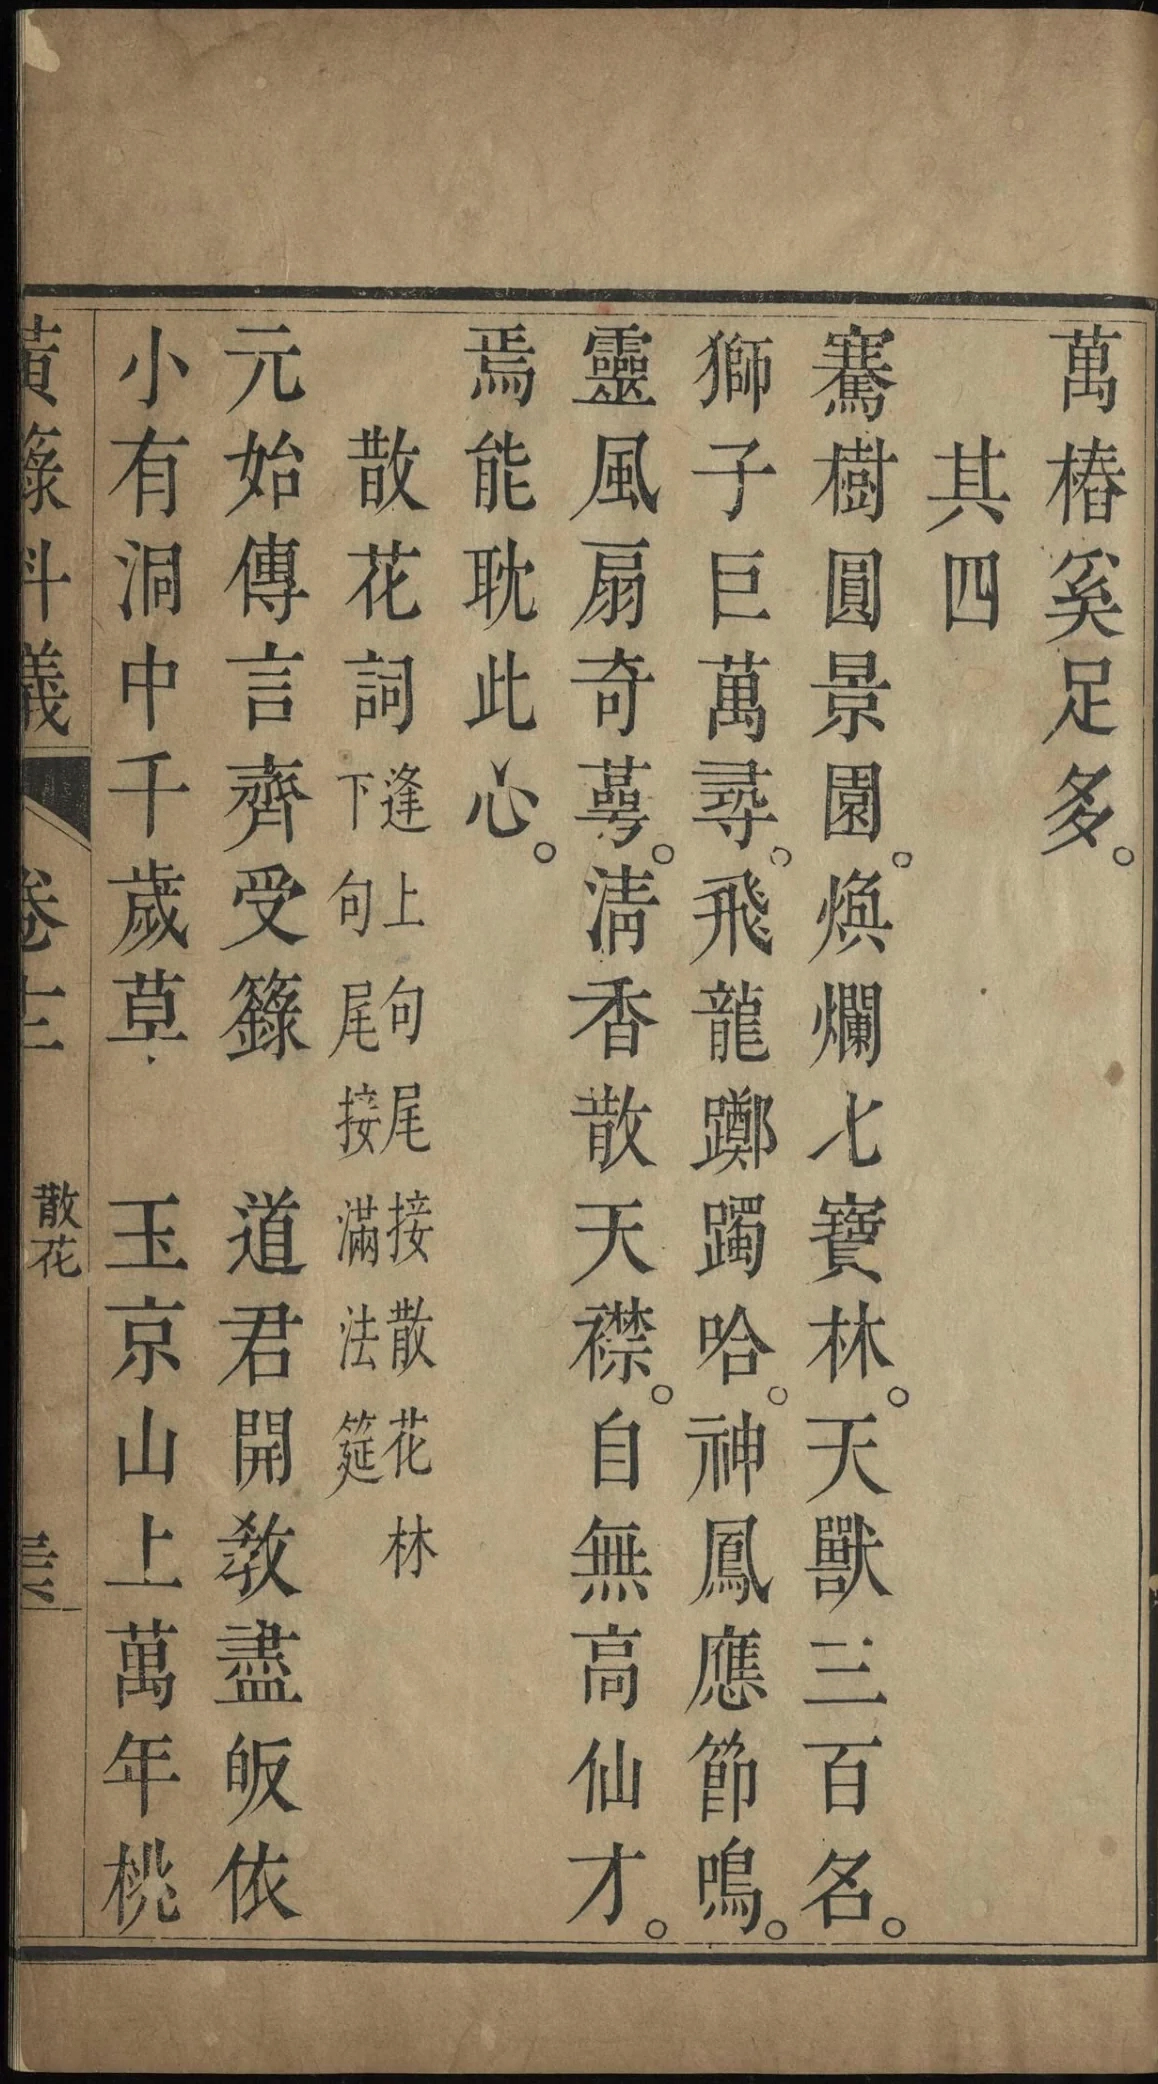 萬椿奚足多。
其四
騫樹圓景園。煥爛七寶林。天獸三百名。
獅子巨萬尋。飛龍躑躅哈。神鳳應節鳴。
靈風扇奇蕚。清香散天襟。自無高仙才。
焉能耽此心。
散花詞 逢上句尾接散花林
下句尾接滿法筵
元始傳言齊受籙　道君開教盡皈依
小有洞中千歲草　玉京山上萬年桃
黃籙科儀 卷十二 散花